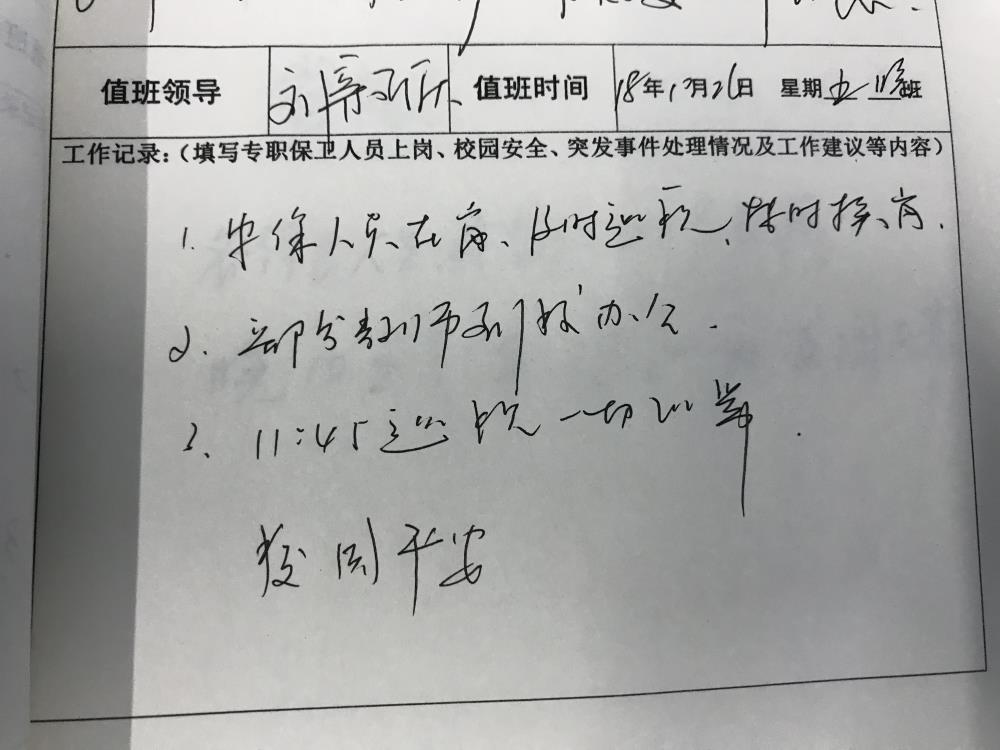 值班领导 刘 值班时间 18年 月26日 星期五 晚班
工作记录：（填写专职保卫人员上岗、校园安全、突发事件处理情况及工作建议等内容）
1. 安保人员在岗、及时巡视、按时换岗.
2. 部分教师到校办公.
3. 11:45巡视一切正常.
校园平安